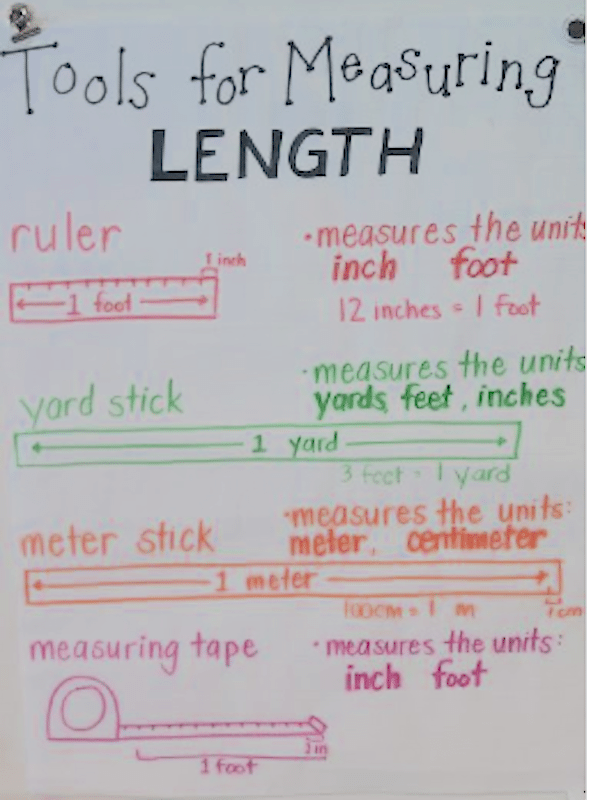 Tools for Measuring
LENGTH
ruler
·measures the units
inch foot
1 inch
1 foot
12 inches = 1 foot
yard stick
·measures the units
yards, feet, inches
1 yard
3 feet = 1 yard
meter stick
·measures the units:
meter, centimeter
1 meter
100cm = 1 m
1 cm
measuring tape
·measures the units:
inch foot
1in
1 foot